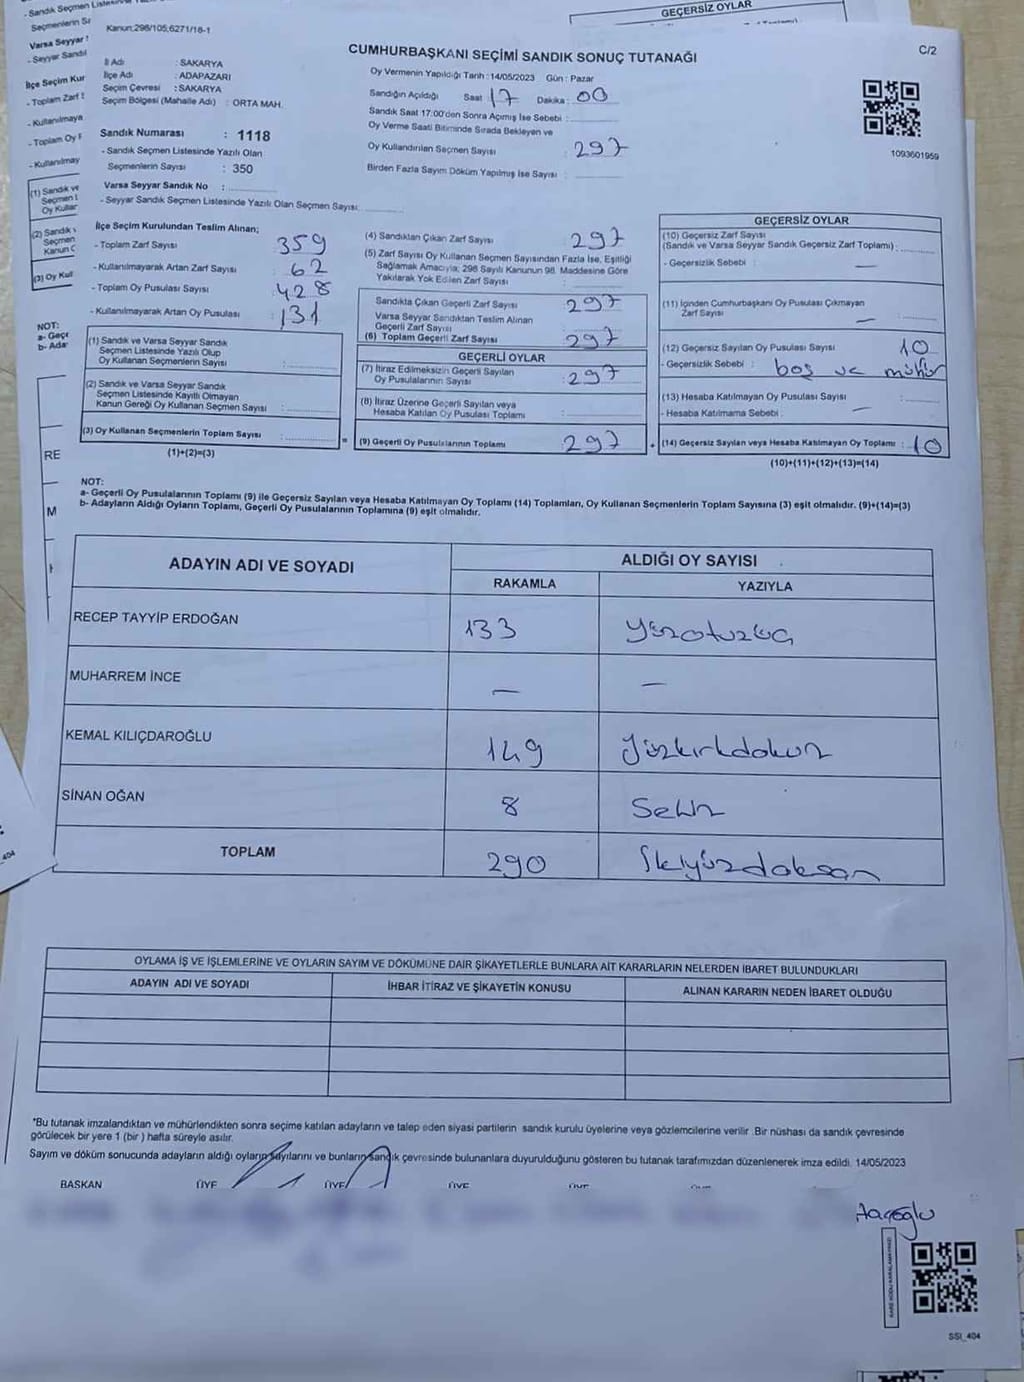 - Sandık Seçmen
Seçmenlerin
Varsa Seyyar
- Seyyar Sandı
İlçe Seçim Kur
- Toplam Zarf
- Kullanılmaya
- Toplam Oy
- Kullanılmay
(1) Sandık ve
Seçmen
Oy Kullar
(2) Sandık
Seçmen
Kanun
(3) Oy Kull
NOT:
a- Geçe
b- Ada
RE
M
GEÇERSİZ OYLAR
Kanun,298/105,6271/18-1
C/2
CUMHURBAŞKANI SEÇİMİ SANDIK SONUÇ TUTANAĞI
İl Adı : SAKARYA
İlçe Adı : ADAPAZARI
Seçim Çevresi : SAKARYA
Seçim Bölgesi (Mahalle Adı) : ORTA MAH.
Sandık Numarası : 1118
- Sandık Seçmen Listesinde Yazılı Olan
Seçmenlerin Sayısı : 350
Varsa Seyyar Sandık No :
- Seyyar Sandık Seçmen Listesinde Yazılı Olan Seçmen Sayısı:
Oy Vermenin Yapıldığı Tarih : 14/05/2023 Gün : Pazar
Sandığın Açıldığı Saat 17 Dakika : 00
Sandık Saat 17:00'den Sonra Açılmış İse Sebebi :
Oy Verme Saati Bitiminde Sırada Bekleyen ve
Oy Kullandırılan Seçmen Sayısı : 297
Birden Fazla Sayım Döküm Yapılmış İse Sayısı :
1093601959
İlçe Seçim Kurulundan Teslim Alınan;
- Toplam Zarf Sayısı : 359
- Kullanılmayarak Artan Zarf Sayısı : 62
- Toplam Oy Pusulası Sayısı : 428
- Kullanılmayarak Artan Oy Pusulası : 131
(1) Sandık ve Varsa Seyyar Sandık
Seçmen Listesinde Yazılı Olup
Oy Kullanan Seçmenlerin Sayısı :
(2) Sandık ve Varsa Seyyar Sandık
Seçmen Listesinde Kayıtlı Olmayan
Kanun Gereği Oy Kullanan Seçmen Sayısı :
(3) Oy Kullanan Seçmenlerin Toplam Sayısı :
(1)+(2)=(3)
(4) Sandıktan Çıkan Zarf Sayısı : 297
(5) Zarf Sayısı Oy Kullanan Seçmen Sayısından Fazla İse, Eşitliği
Sağlamak Amacıyla; 298 Sayılı Kanunun 98. Maddesine Göre
Yakılarak Yok Edilen Zarf Sayısı :
Sandıkta Çıkan Geçerli Zarf Sayısı : 297
Varsa Seyyar Sandıktan Teslim Alınan
Geçerli Zarf Sayısı :
(6) Toplam Geçerli Zarf Sayısı : 297
GEÇERLİ OYLAR
(7) İtiraz Edilmeksizin Geçerli Sayılan
Oy Pusulalarının Sayısı : 297
(8) İtiraz Üzerine Geçerli Sayılan veya
Hesaba Katılan Oy Pusulası Toplamı :
= (9) Geçerli Oy Pusulalarının Toplamı : 297
GEÇERSİZ OYLAR
(10) Geçersiz Zarf Sayısı
(Sandık ve Varsa Seyyar Sandık Geçersiz Zarf Toplamı) :
- Geçersizlik Sebebi : —
(11) İçinden Cumhurbaşkanı Oy Pusulası Çıkmayan
Zarf Sayısı : —
(12) Geçersiz Sayılan Oy Pusulası Sayısı : 10
- Geçersizlik Sebebi : boş ve mühür
(13) Hesaba Katılmayan Oy Pusulası Sayısı :
- Hesaba Katılmama Sebebi : —
+ (14) Geçersiz Sayılan veya Hesaba Katılmayan Oy Toplamı : 10
(10)+(11)+(12)+(13)=(14)
NOT:
a- Geçerli Oy Pusulalarının Toplamı (9) ile Geçersiz Sayılan veya Hesaba Katılmayan Oy Toplamı (14) Toplamları, Oy Kullanan Seçmenlerin Toplam Sayısına (3) eşit olmalıdır. (9)+(14)=(3)
b- Adayların Aldığı Oyların Toplamı, Geçerli Oy Pusulalarının Toplamına (9) eşit olmalıdır.
ADAYIN ADI VE SOYADI ALDIĞI OY SAYISI
RAKAMLA YAZIYLA
RECEP TAYYİP ERDOĞAN 133 Yüzotuzüç
MUHARREM İNCE — —
KEMAL KILIÇDAROĞLU 149 Yüzkırkdokuz
SİNAN OĞAN 8 Sekiz
TOPLAM 290 İkiyüzdoksan
OYLAMA İŞ VE İŞLEMLERİNE VE OYLARIN SAYIM VE DÖKÜMÜNE DAİR ŞİKAYETLERLE BUNLARA AİT KARARLARIN NELERDEN İBARET BULUNDUKLARI
ADAYIN ADI VE SOYADI İHBAR İTİRAZ VE ŞİKAYETİN KONUSU ALINAN KARARIN NEDEN İBARET OLDUĞU
*Bu tutanak imzalandıktan ve mühürlendikten sonra seçime katılan adayların ve talep eden siyasi partilerin sandık kurulu üyelerine veya gözlemcilerine verilir .Bir nüshası da sandık çevresinde
görülecek bir yere 1 (bir ) hafta süreyle asılır.
Sayım ve döküm sonucunda adayların aldığı oyların sayılarını ve bunların sandık çevresinde bulunanlara duyurulduğunu gösteren bu tutanak tarafımızdan düzenlenerek imza edildi. 14/05/2023
BAŞKAN ÜYE ÜYE ÜYE ÜYE
KARE KODU KARALAMAYINIZ
SSI_404
_404